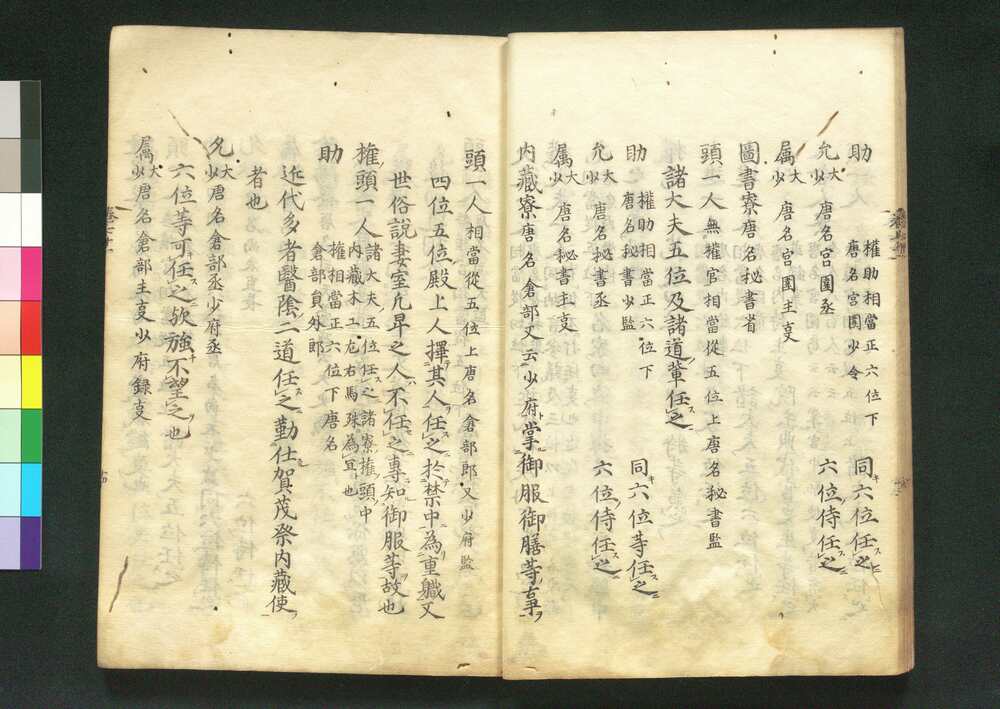 助 權助相當正六位下 同六位任之
唐名宮圍少令
允大少 唐名宮圍丞 六位侍任之
属大少 唐名宮圍主㕝
圖書寮唐名秘書省
頭一人無權官相當從五位上唐名秘書監
諸大夫五位及諸道輩任之
助 權助相當正六位下 同六位等任之
唐名秘書少監
允大少 唐名秘書丞 六位侍任之
属大少 唐名秘書主㕝
内藏寮唐名倉部又云少府掌御服御膳等㕝
頭一人相當從五位上唐名倉部郎又少府監
四位五位殿上人擇其人任之於禁中為重軄又
世俗說妻室凢卑之人不任之專知御服等故也
權頭一人諸大夫五位任之諸寮權頭中
内藏木工左右馬殊為冝也
助 權相當正六位下唐名
倉部員外郎
近代多者醫陰二道任之勤仕賀茂祭内藏使
者也
允大少唐名倉部丞少府丞
六位等可任之欤強不望之也
属大少唐名倉部主㕝少府錄㕝